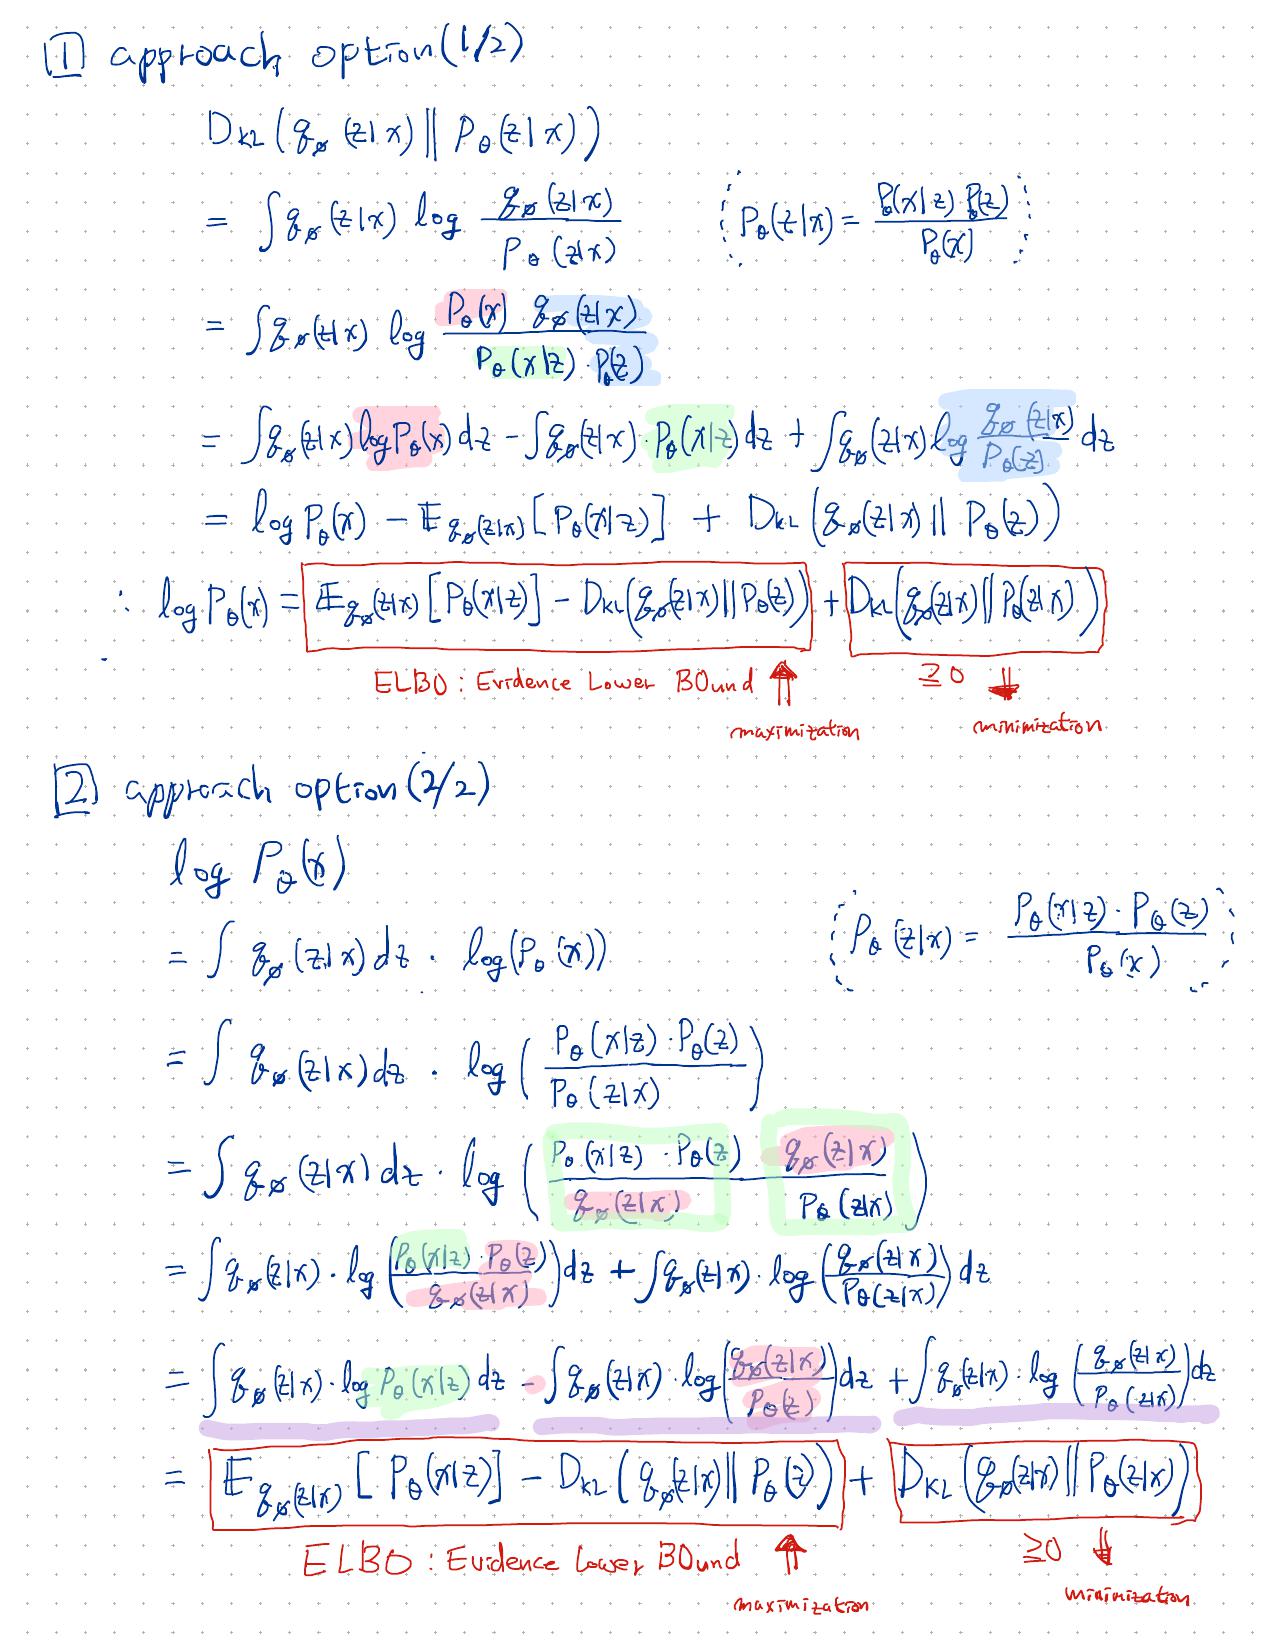 1 approach option (1/2)
D_KL(q_ø(z|x) || P_θ(z|x))
= ∫q_ø(z|x) log q_ø(z|x) / P_θ(z|x)
P_θ(z|x) = P_θ(x|z) P_θ(z) / P_θ(x)
= ∫q_ø(z|x) log P_θ(x) q_ø(z|x) / P_θ(x|z) · P_θ(z)
= ∫q_ø(z|x) log P_θ(x) dz - ∫q_ø(z|x) · P_θ(x|z) dz + ∫q_ø(z|x) log q_ø(z|x) / P_θ(z) dz
= log P_θ(x) - 𝔼_q_ø(z|x) [P_θ(x|z)] + D_KL(q_ø(z|x) || P_θ(z))
∴ log P_θ(x) = 𝔼_q_ø(z|x) [P_θ(x|z)] - D_KL(q_ø(z|x) || P_θ(z)) + D_KL(q_ø(z|x) || P_θ(z|x))
ELBO : Evidence Lower BOund ↑ ≥0 ↓
maximization minimization
2 approach option (2/2)
log P_θ(x)
= ∫ q_ø(z|x) dz · log(P_θ(x))
P_θ(z|x) = P_θ(x|z) · P_θ(z) / P_θ(x)
= ∫ q_ø(z|x) dz · log ( P_θ(x|z) · P_θ(z) / P_θ(z|x) )
= ∫ q_ø(z|x) dz · log ( P_θ(x|z) · P_θ(z) / q_ø(z|x) q_ø(z|x) / P_θ(z|x) )
= ∫q_ø(z|x) · log ( P_θ(x|z) · P_θ(z) / q_ø(z|x) ) dz + ∫q_ø(z|x) · log ( q_ø(z|x) / P_θ(z|x) ) dz
= ∫ q_ø(z|x) · log P_θ(x|z) dz - ∫ q_ø(z|x) · log ( q_ø(z|x) / P_θ(z) ) dz + ∫ q_ø(z|x) · log ( q_ø(z|x) / P_θ(z|x) ) dz
= 𝔼_q_ø(z|x) [ P_θ(x|z)] - D_KL ( q_ø(z|x) || P_θ(z)) + D_KL (q_ø(z|x) || P_θ(z|x))
ELBO : Evidence Lower BOund ↑ ≥0 ↓
maximization minimization